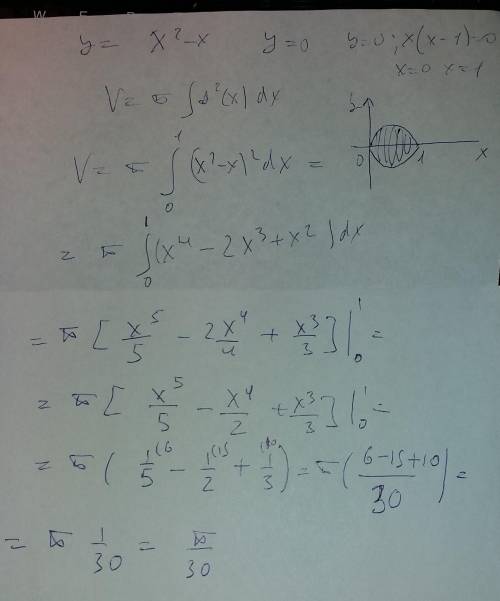 y = x² - x    y = 0    y = 0; x(x-1)=0
x=0 x=1
V = π ∫ f²(x) dx
V = π ∫₀¹ (x² - x)² dx =
y
0 1 x
= π ∫₀¹ (x⁴ - 2x³ + x²) dx
= π [ x⁵/5 - 2x⁴/4 + x³/3 ] |₀¹ =
= π [ x⁵/5 - x⁴/2 + x³/3 ] |₀¹ =
= π ( 1/5 ⁽⁶ - 1/2 ⁽¹⁵ + 1/3 ⁽¹⁰ ) = π ( (6-15+10)/30 ) =
= π 1/30 = π/30